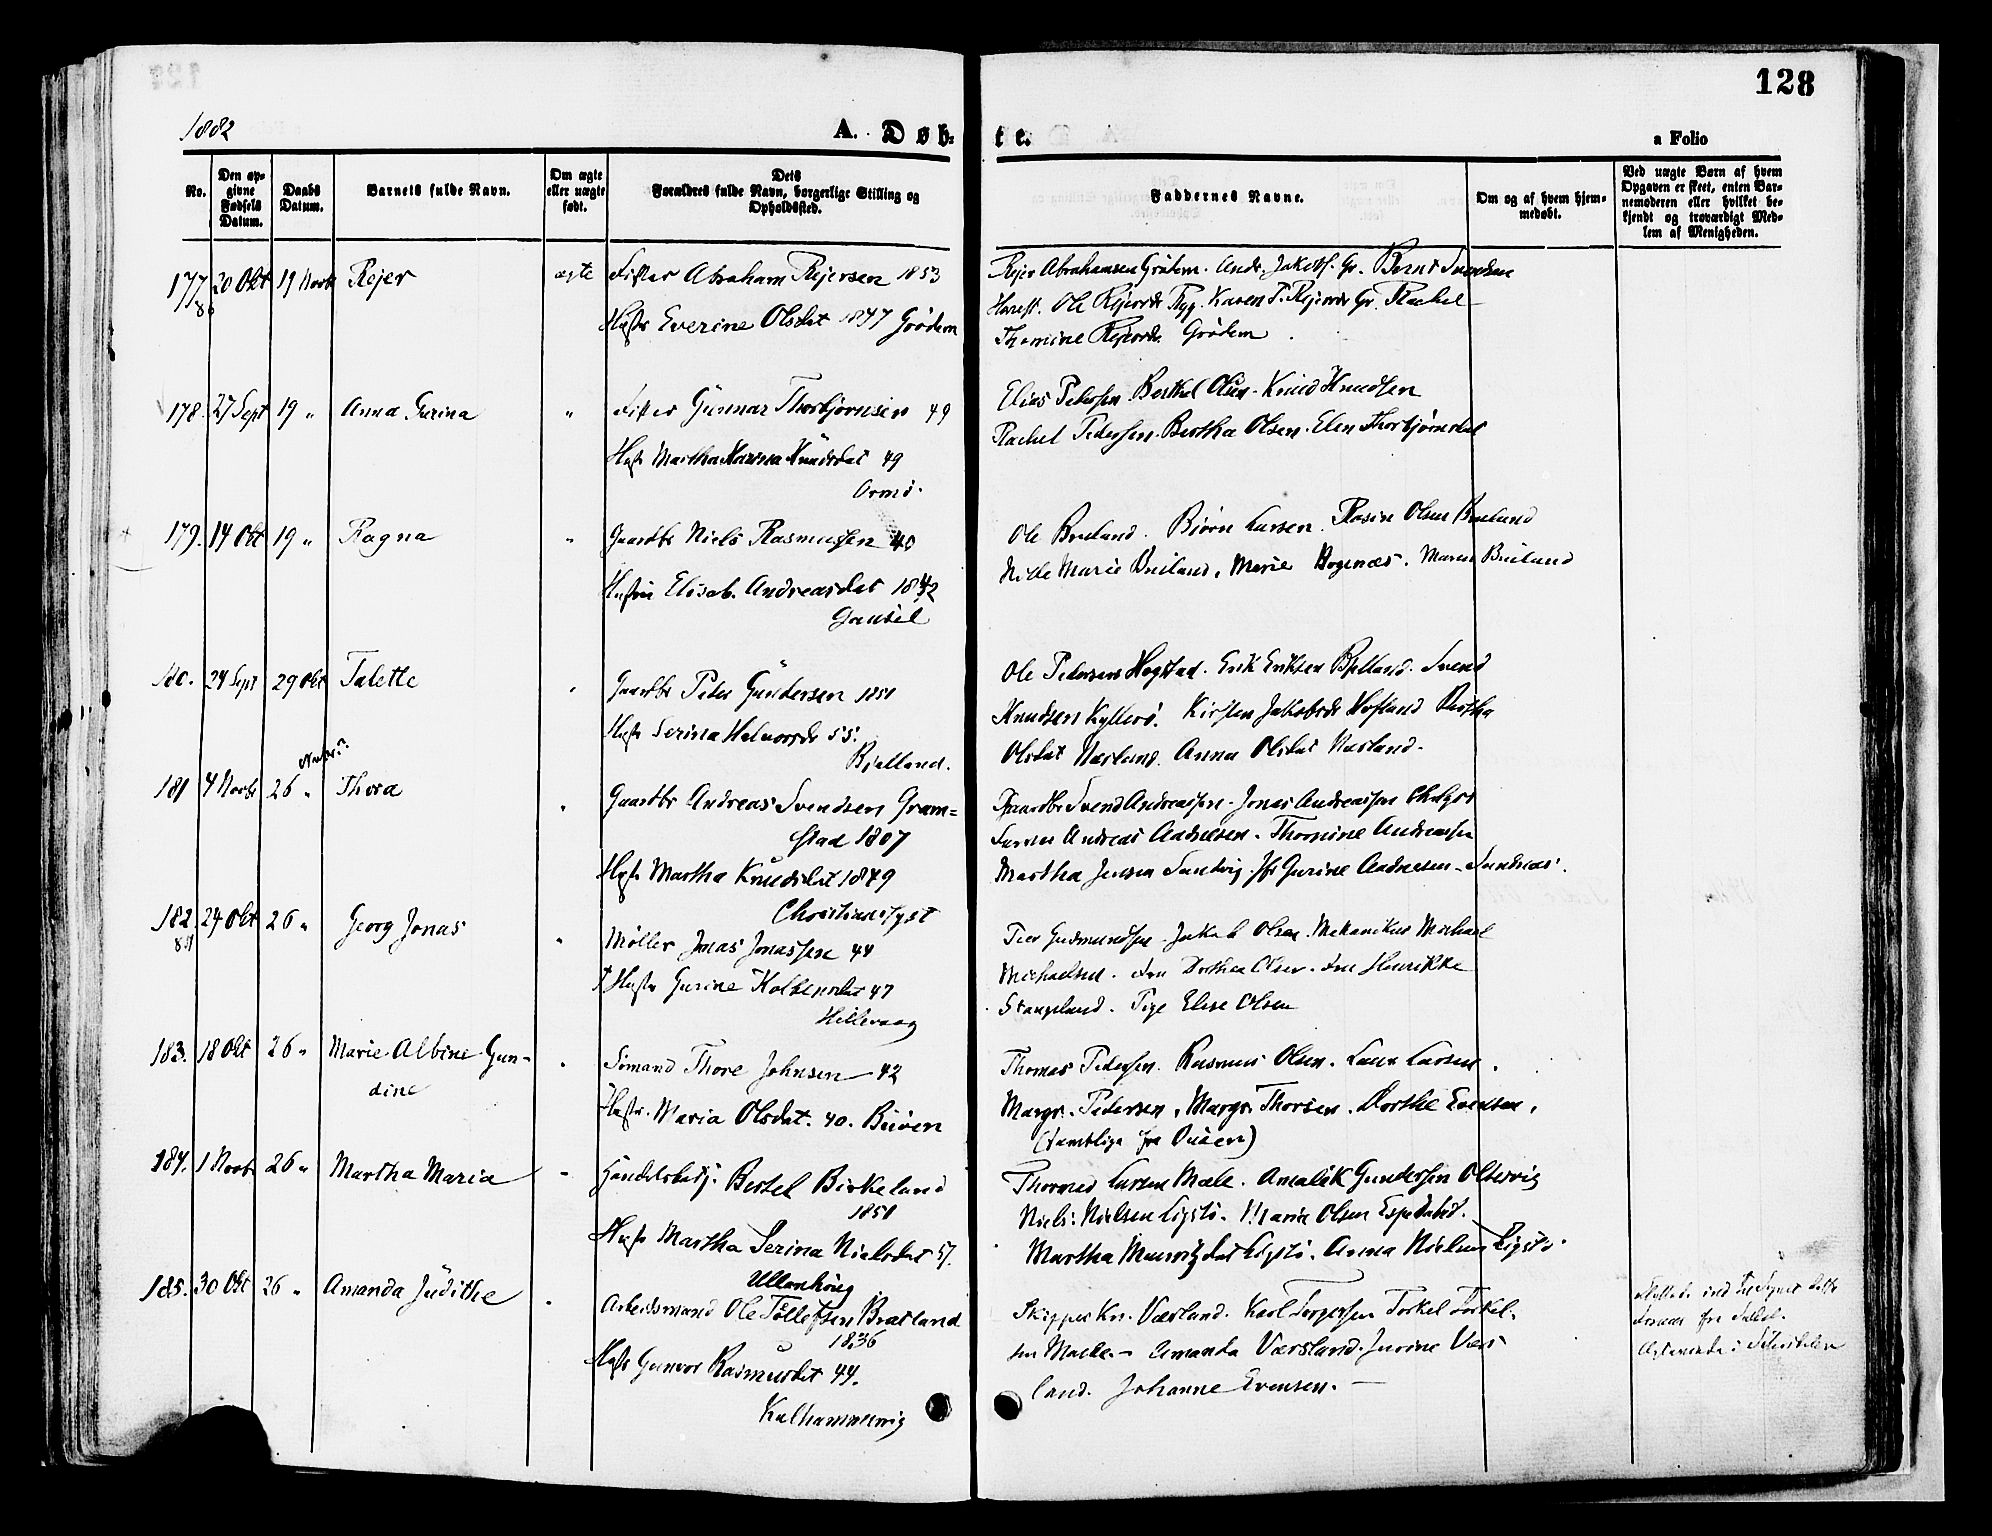 128
1882
A. Døb-
te.
a Folio
No.
Den op-
givne
Fødsels
Datum.
Daabs
Datum.
Barnets fulde Navn.
Om ægte
eller uægte
født.
Dets
Forældres fulde Navn, borgerlige Stilling og
Opholdssted.
Faddernes Navne.
Om og af hvem hjem-
medøbt.
Ved uægte Børn af hvem
Opgaven er skeet, enten Bar-
nemoderen eller hvilket be-
kjendt og troværdigt Med-
lem af Menigheden.
177 20 Okt 19 Novb Rejer ægte Fisker Abraham Rejersen 1853
Hustr Everine Olsdat 1847 Grødem
Rejer Abrahamsen Grødem. Andr. Jakobs. Gr. Bernt Svendsen
Ole Rejersd. Karen P. Rejersd Gr. Rachel
Thomine Rejersd. Grødem
178. 27 Sept 19 " Anna Gurina " Fisker Gunnar Thorbjørnsen 49
Hustr Martha Karina Knudsdat 49
Ormø.
Elias Pedersen. Berthel Olsen. Knud Knudsen
Rachel Pedersen. Bertha Olsen. Elen Thorbjørnsdat
179. 14 Okt 19 " Ragna " Gaardbr Niels Rasmussen 40
Hustru Elisab. Andreasdat 1842
Gausel
Ole Breiland. Bjørn Larsen. Rasin Olsen Breiland
Marie Breiland, Marie Bogenæs. Maren Breiland
180. 24 Sept 29 Okt Talette " Gaardbr Peder Gundersen 1851
Hustr Serina Halvorsd 55.
Bjelland.
Ole Pedersen Hogstad. Erik Eriksen Bjelland. Svend
Knudsen Kyllesø. Kirsten Jakobsdt Hofland Bertha
Olsdat Næsland. Anna Olsdat Næsland.
181 4 Novbr 26 " Thora " Gaardbr Andreas Svendsen Gram-
stad 1807
Hustr Martha Knudsdat 1849
Christianslyst
Gaardbr Svend Andreassen. Jonas Andreassen
Andreas Aadnesen. Thomine Andreassen
Martha Jensen Sandvig. Jfr Gurine Aadnesen. Sundnæs.
182 24 Okt 26 " Georg Jonas " Møller Jonas Jonassen 44
Hustr Gurine Kolbensdat 47
Hillevaag
Peer Gudmundsen. Jakob Olsen. Mekanikus Michael
Michaelsen. Fru Dorthea Olsen. Fru Henrikke
Stangeland. Pige Elise Olsen
183. 18 Okt 26 " Marie Albine Gun-
dine
" Sømand Thore Johnsen 42
Hustr. Maria Olsdat. 40. Buøen
Thomas Pedersen. Rasmus Olsen. Lars Larsen.
Margr. Pedersen, Margr. Thorsen. Dorthe Evensen,
(samtlige fra Buøen)
184. 1 Novb 26 " Martha Maria " Handelsbetj. Bertel Birkeland
1851
Hustr Martha Serina Nielsdat 57.
Ullenhoug
Thomas Larsen Mæle. Amalik Gundersen Oltedvig
Niels Nielsen Ligstø. Maria Olsen Espedalst.
Martha Mauritzdat Ligstø. Anna Nielsen Ligstø.
185. 30 Okt 26 " Amanda Judithe " Arbeidsmand Ole Tollefsen Bratland
1836
Hustr Gunvor Rasmusdat 44.
Kalhammervig
Skipper Kr. Værsland. Karl Torgersen Torkel Torkel-
sen Maele. - Amanda Værsland. Jurine Værs-
land. Johanne Evensen. -